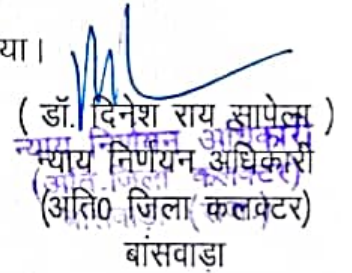 या।
( डॉ. दिनेश राय सापेला )
न्याय निर्णयन अधिकारी
(अति0 जिला कलक्टर)
बांसवाडा